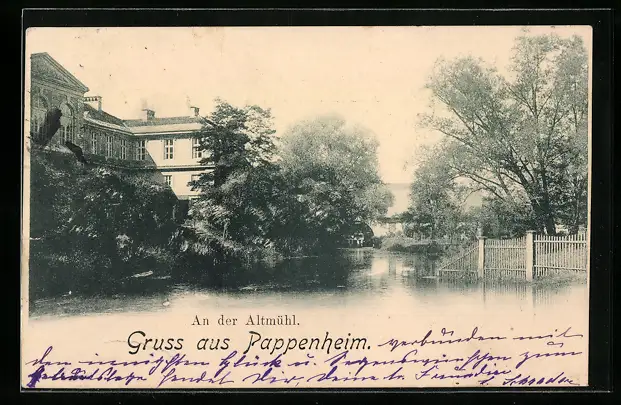 An der Altmühl.
Gruss aus Pappenheim. verbunden mit
den innigsten Glück u. Segenswünschen zum
Geburtstage sendet Dir, Deine treue Freundin